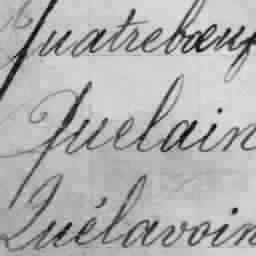 Quatrebœuf
Quelain
Quélavoin